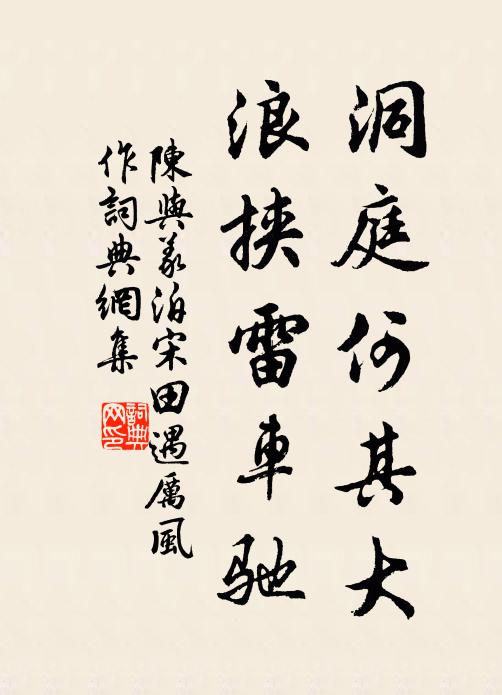 洞庭何其大
浪挾雷車馳
陳與義泊宋田遇厲風
作詞典網集
詞典
网印